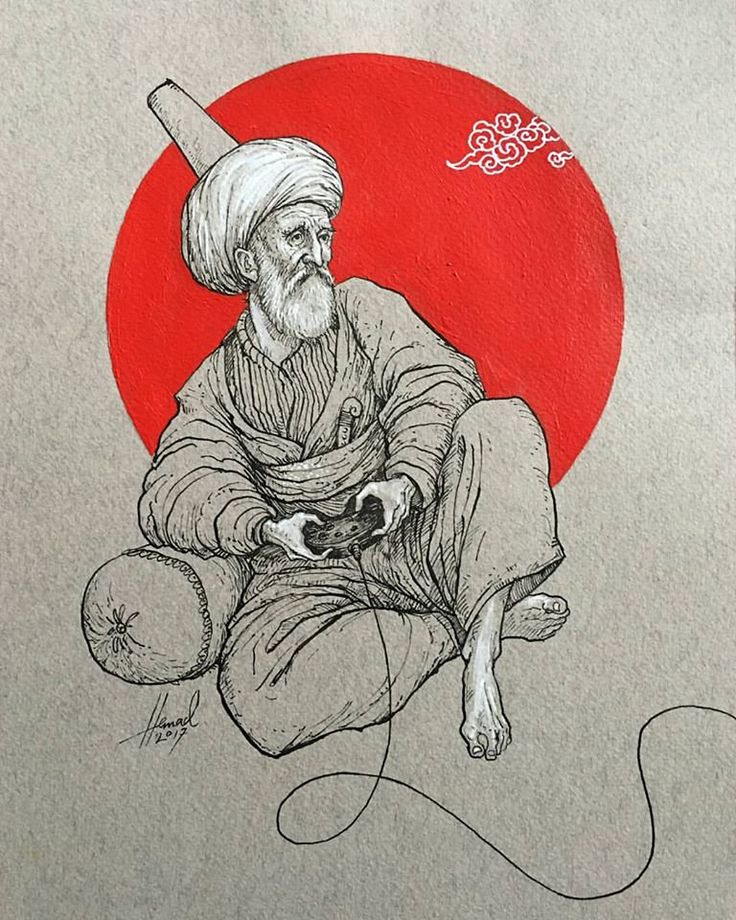 Hemad
2017